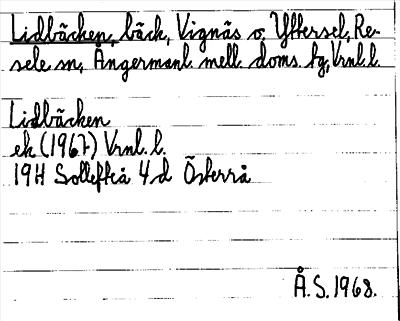 Lidbäcken, bäck, Vignäs o. Yttersel, Re-
sele sn, Ångermanl. mell. doms. tg, Vrnl. l.
Lidbäcken
ek (1967) Vrnl. l.
19H Sollefteå 4 d Österrå
Å.S. 1968.